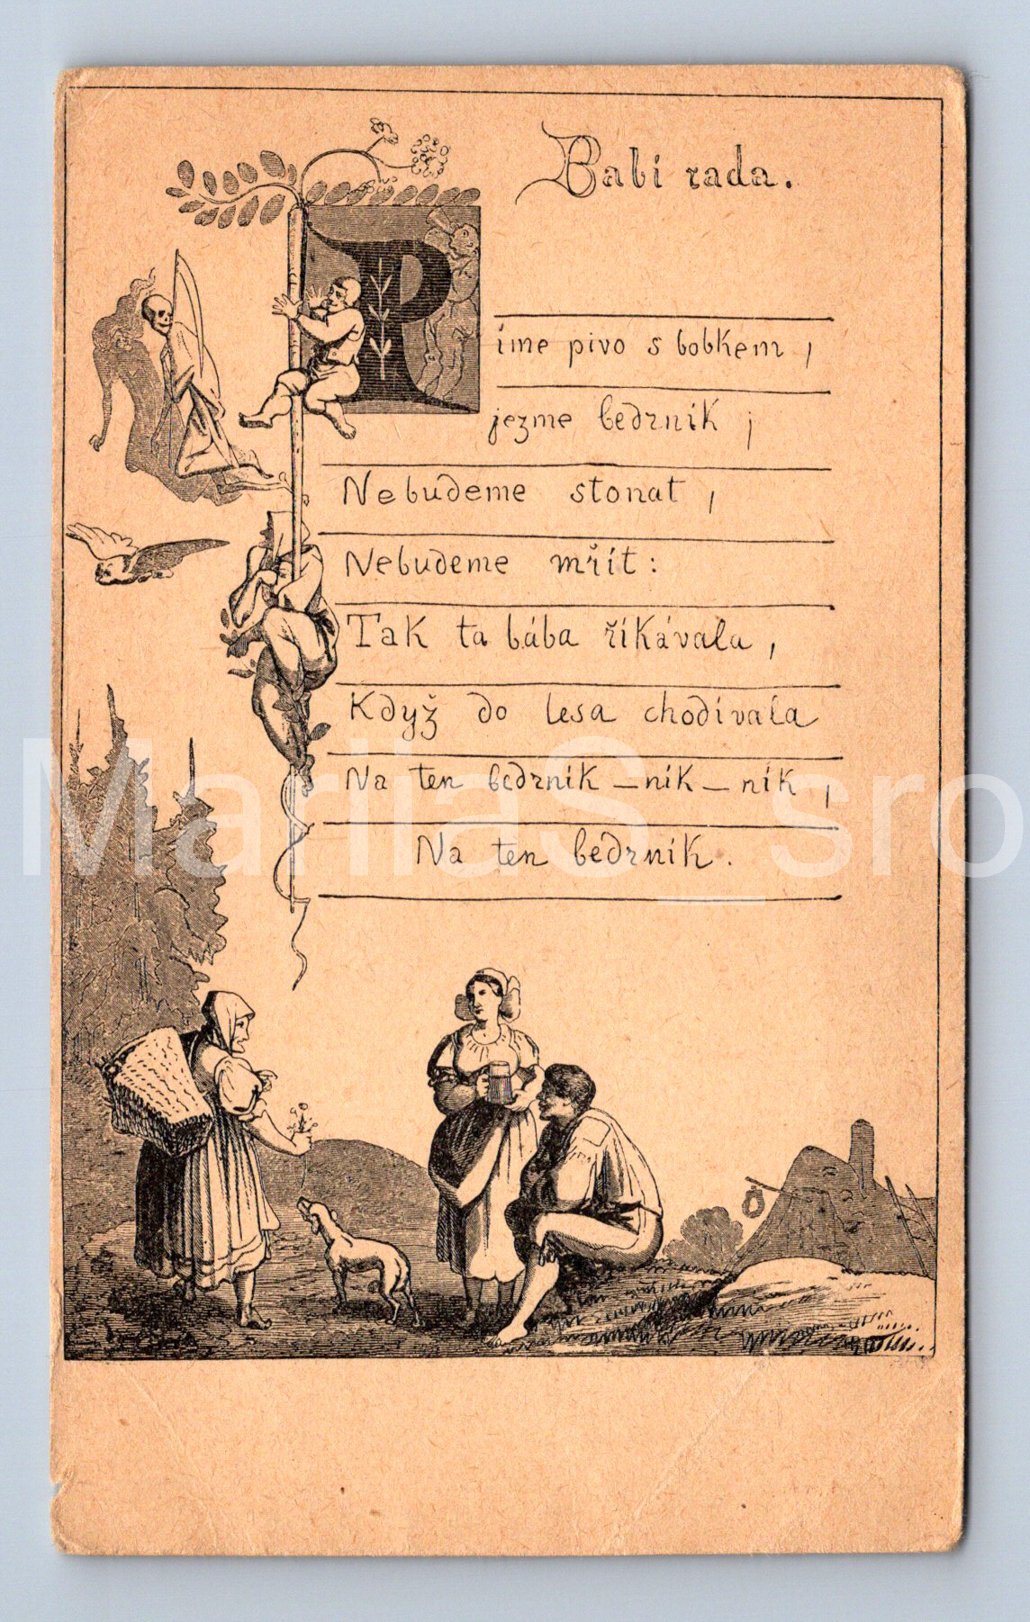 Babí rada.
Píme pivo s bobkem,
jezme bedrník;
Nebudeme stonat,
Nebudeme mřít:
Tak ta bába říkávala,
Když do lesa chodívala
Na ten bedrník – ník – ník,
Na ten bedrník.
MariiaS_sro